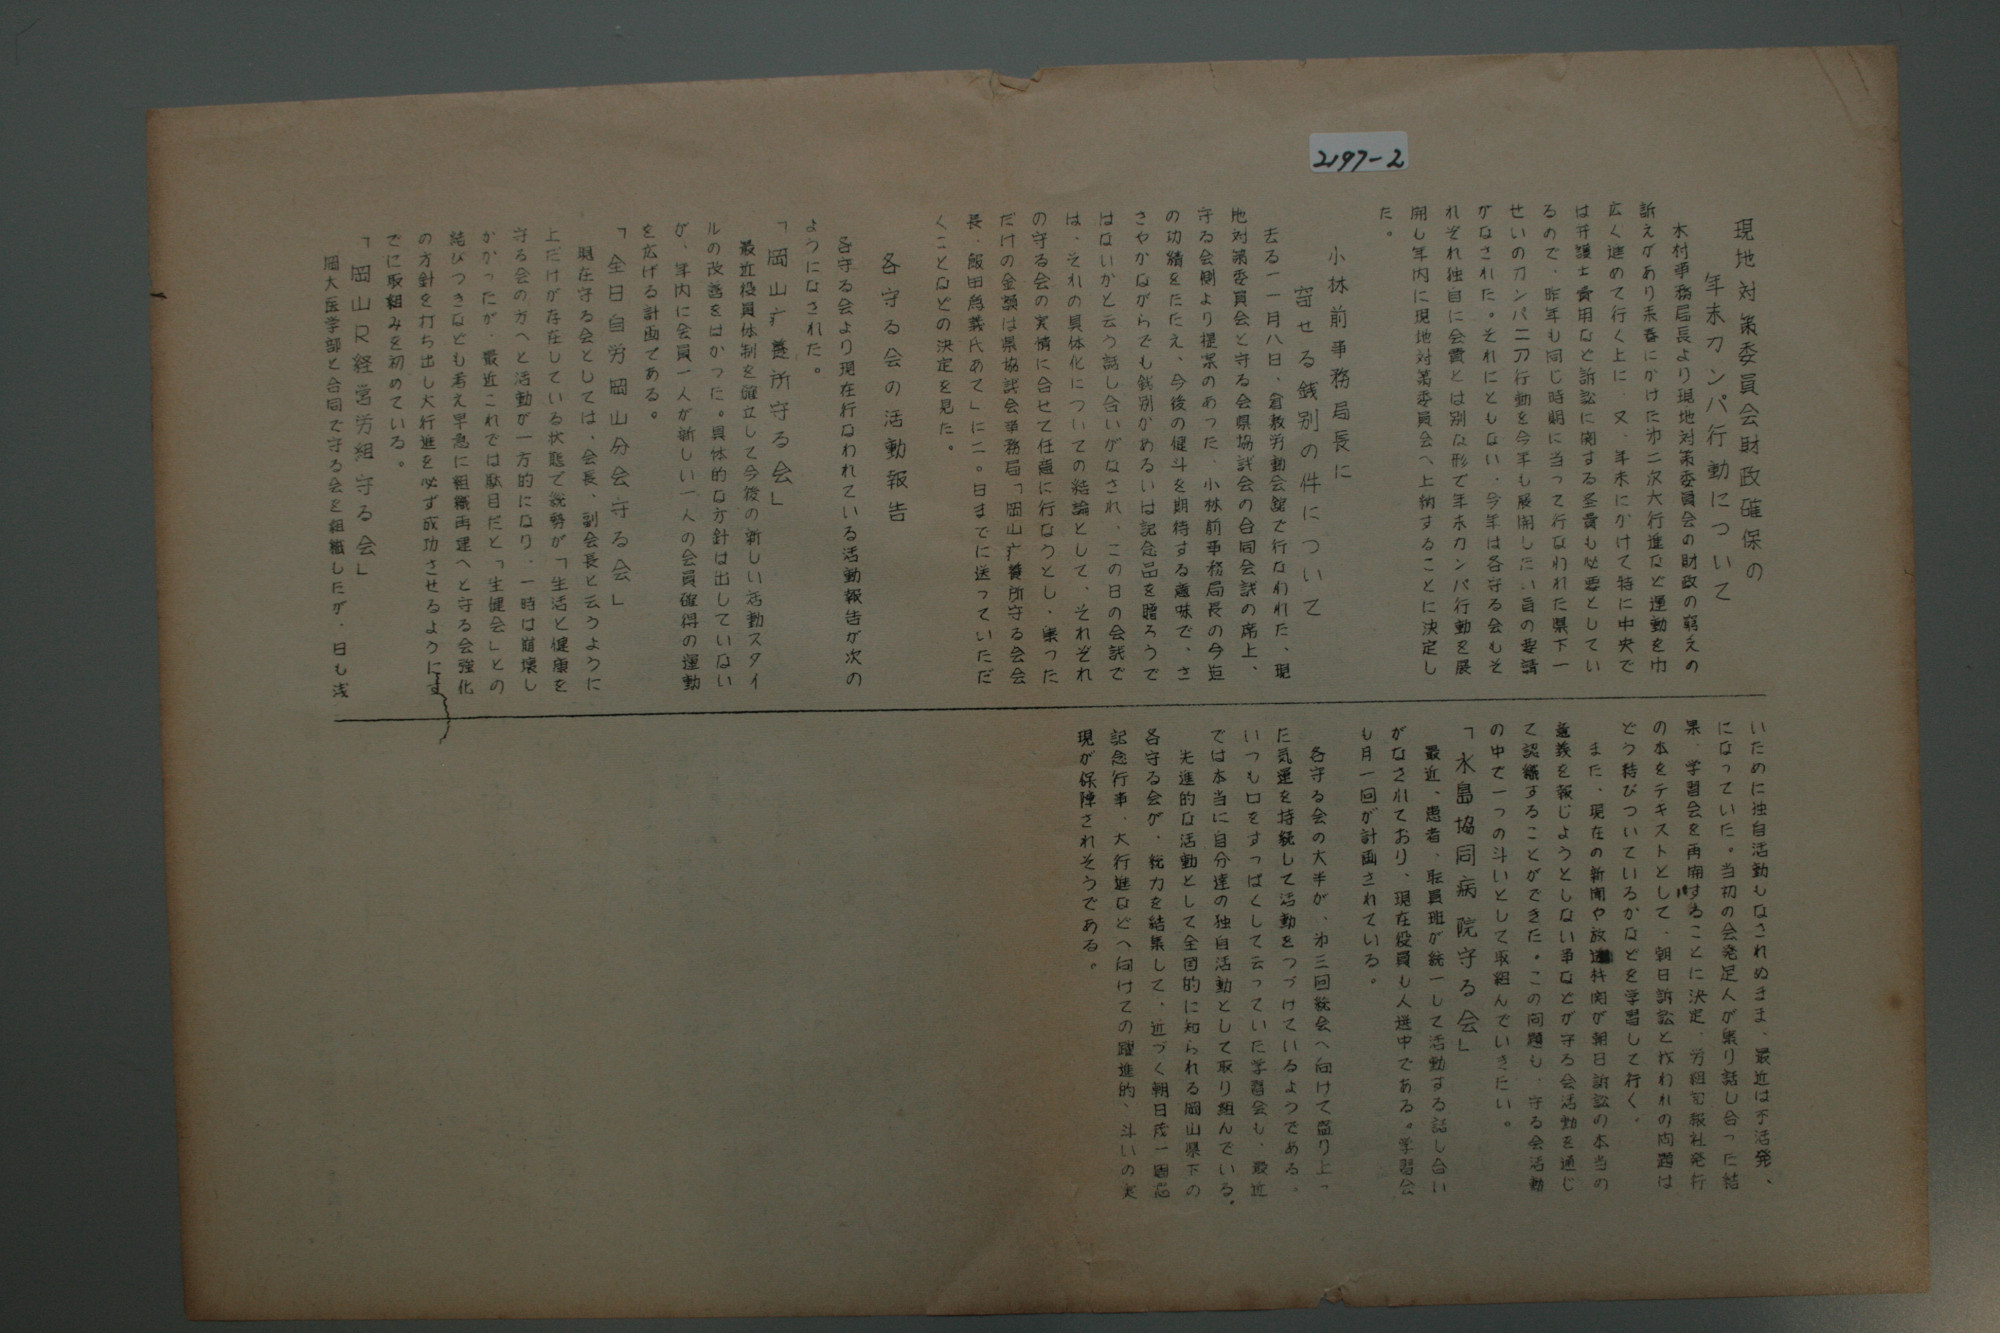 2197-2
現地対策委員会財政確保の
年末カンパ行動について
木村事務局長より現地対策委員会の財政の窮えの
訴えがあり来春にかけた㐧二次大行進など運動を巾
広く進めて行く上に、又、年末にかけて特に中央で
は弁護士費用など訴訟に関する圣費も必要としてい
るので、昨年も同じ時期に当って行なわれた県下一
せいのカンパニア行動を今年も展開したい旨の要請
がなされた。それにともない、今年は各守る会もそ
れぞれ独自に会費とは別な形で年末カンパ行動を展
開し年内に現地対策委員会へ上納することに決定し
た。
小林前事務局長に
寄せる銭別の件について
去る一一月八日、倉敷労動会舘で行なわれた、現
地対策委員会と守る会県協議会の合同会議の席上、
守る会側より提案のあった、小林前事務局長の今迠
の功績をたたえ、今後の健斗を期待する意味で、さ
さやかながらでも銭別かあるいは記念品を贈ろうで
はないかと云う話し合いがなされ、この日の会議で
は、それの具体化についての結論として、それぞれ
の守る会の実情に合せて任意に行なうとし、集った
だけの金額は県協議会事務局「岡山疗養所守る会会
長、飯田為義氏あて」に二〇日までに送っていただ
くことなどの決定を見た。
各守る会の活動報告
各守る会より現在行なわれている活動報告が次の
ようになされた。
「岡山疗養所守る会」
最近役員体制を確立して今後の新しい活動スタイ
ルの改善をはかった。具体的な方針は出していない
が、年内に会員一人が新しい一人の会員確得の運動
を広げる計画である。
「全日自労岡山分会守る会」
現在守る会としては、会長、副会長と云うように
上だけが存在している状態で統勢が「生活と健康を
守る会の方へと活動が一方的になり、一時は崩壊し
かかったが、最近これでは駄目だと「生健会」との
結びつきなども考え早急に組織再建へと守る会強化
の方針を打ち出し大行進を必ず成功させるようにす
でに取組みを初めている。
「岡山R経営労組守る会」
岡大医学部と合同で守る会を組織したが、日も浅
いために独自活動もなされぬまま、最近は不活発、
になっていた。当初の会発足人が集り話し合った結
果、学習会を再開することに決定、労組旬報社発行
の本をテキストとして、朝日訴訟と我われの問題は
どう結びついているかなどを学習して行く。
また、現在の新聞や放送機関が朝日訴訟の本当の
意義を報じようとしない事などが守る会活動を通じ
て認織することができた。この問題も、守る会活動
の中で一つの斗いとして取組んでいきたい。
「水島協同病院守る会」
最近、患者、職員班が統一して活動する話し合い
がなされており、現在役員も人選中である。学習会
も月一回が計画されている。
各守る会の大半が、㐧三回総会へ向けて盛り上っ
た気運を持続して活動をつづけているようである。
いつも口をすっぱくして云っていた学習会も、最近
では本当に自分達の独自活動として取り組んでいる。
先進的な活動として全国的に知られる岡山県下の
各守る会が、総力を結集して、近づく朝日茂一周忌
記念行事、大行進などへ向けての躍進的、斗いの実
現が保障されそうである。